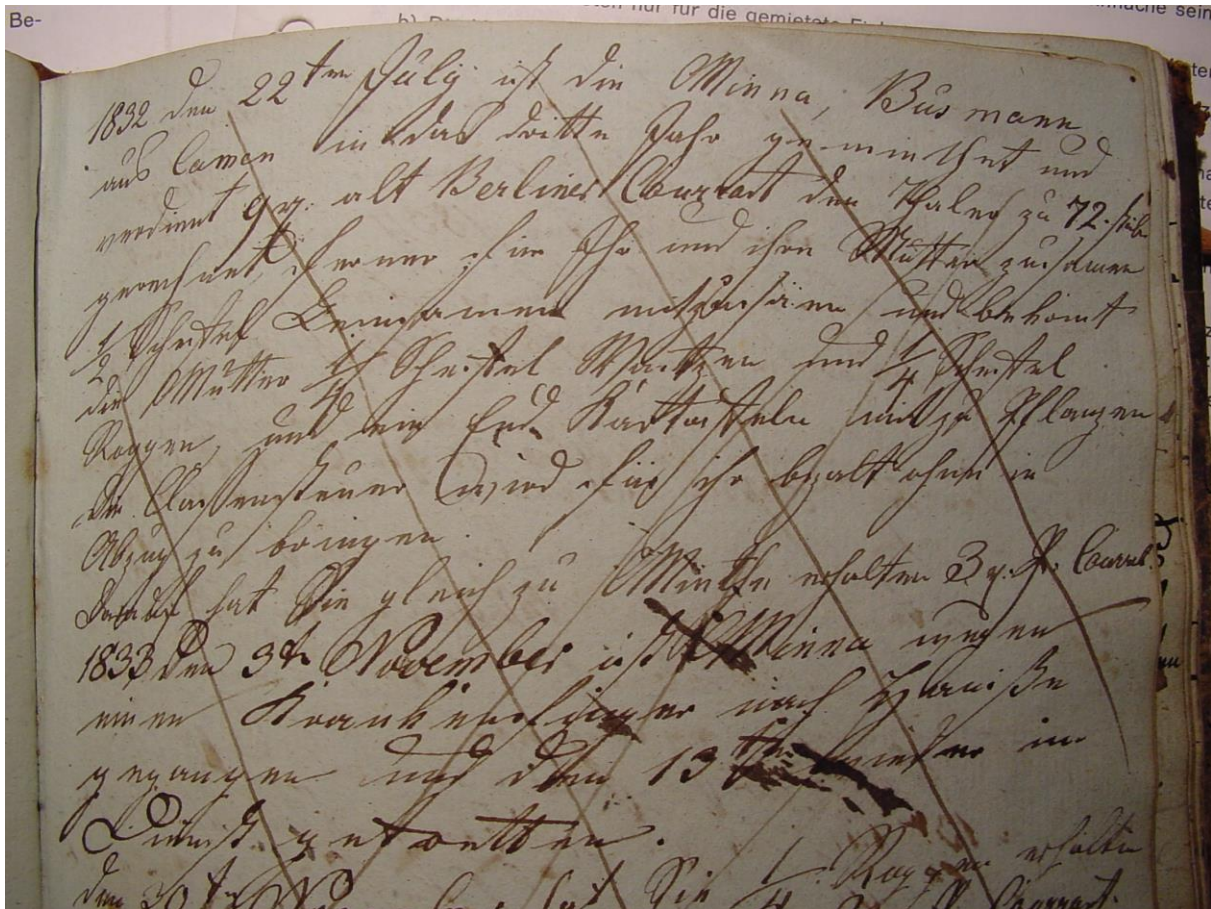 Be-
ten nur für die gemietete
1832 den 22ten July ist die Minna, Busmann
aus Lawen in das dritte Jahr gemiethet und
verdient 9 alt Berliner Courrant den Thaler zu 72. stüb
gerechnet, ferner für Ihr und ihre Mutter zusamen
1/2 Scheffel Leinsamen mit zu säen und bekomt
die Mutter 1/4 Scheffel Waitzen und 1/4 Scheffel
Roggen, und ein Kartoffeln mit zu Pflanzen
die Classensteuer wird für ihr bezalt ohne in
Abzug zu bringen.
Darauf hat Sie gleich zu Miethe erhalten 3 Courrt
1833 den 3t November ist Minna wegen
einen Kranken finger nach Hauiße
gegangen und den 13 wieder in
Dienst getretten.
den 30 hat Sie 1/4 Roggen erhalten
Courrant.